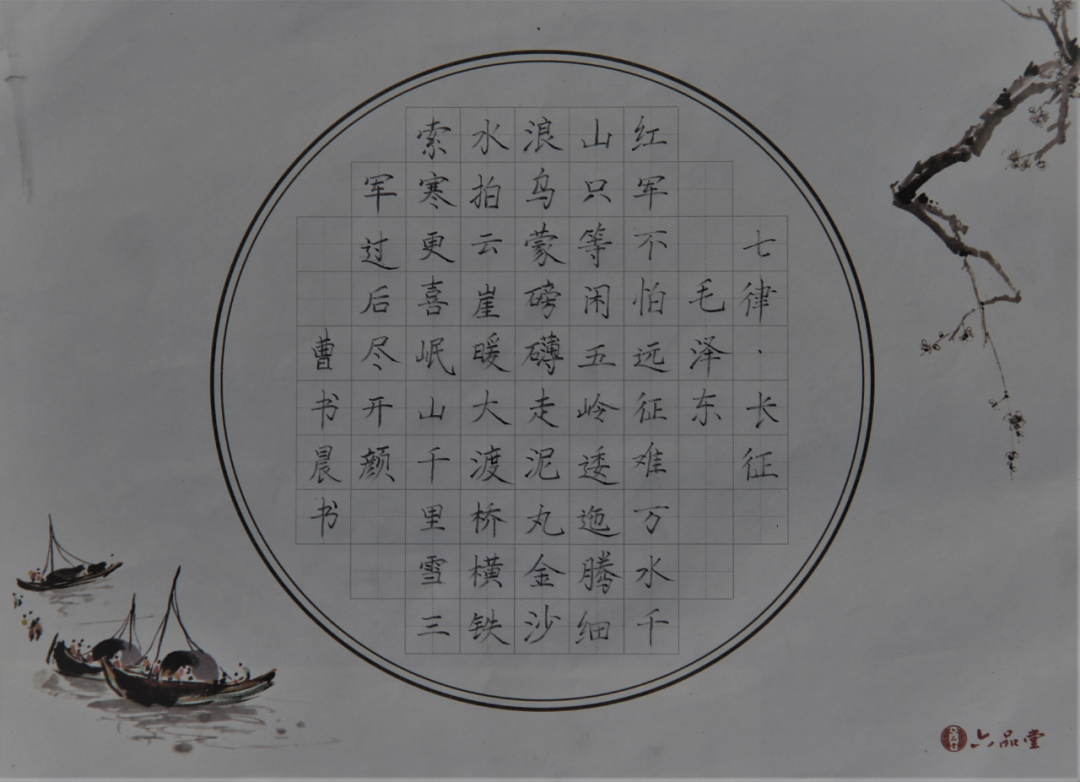 七律·长征
毛泽东
红军不怕远征难万水千
山只等闲五岭逶迤腾细
浪乌蒙磅礴走泥丸金沙
水拍云崖暖大渡桥横铁
索寒更喜岷山千里雪三
军过后尽开颜
曹书晨书
六品堂